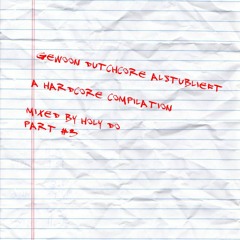 GEWOON DUTCHCORE ALSTUBLIEFT
A HARDCORE COMPILATION
MIXED BY HOLY DO
PART #3